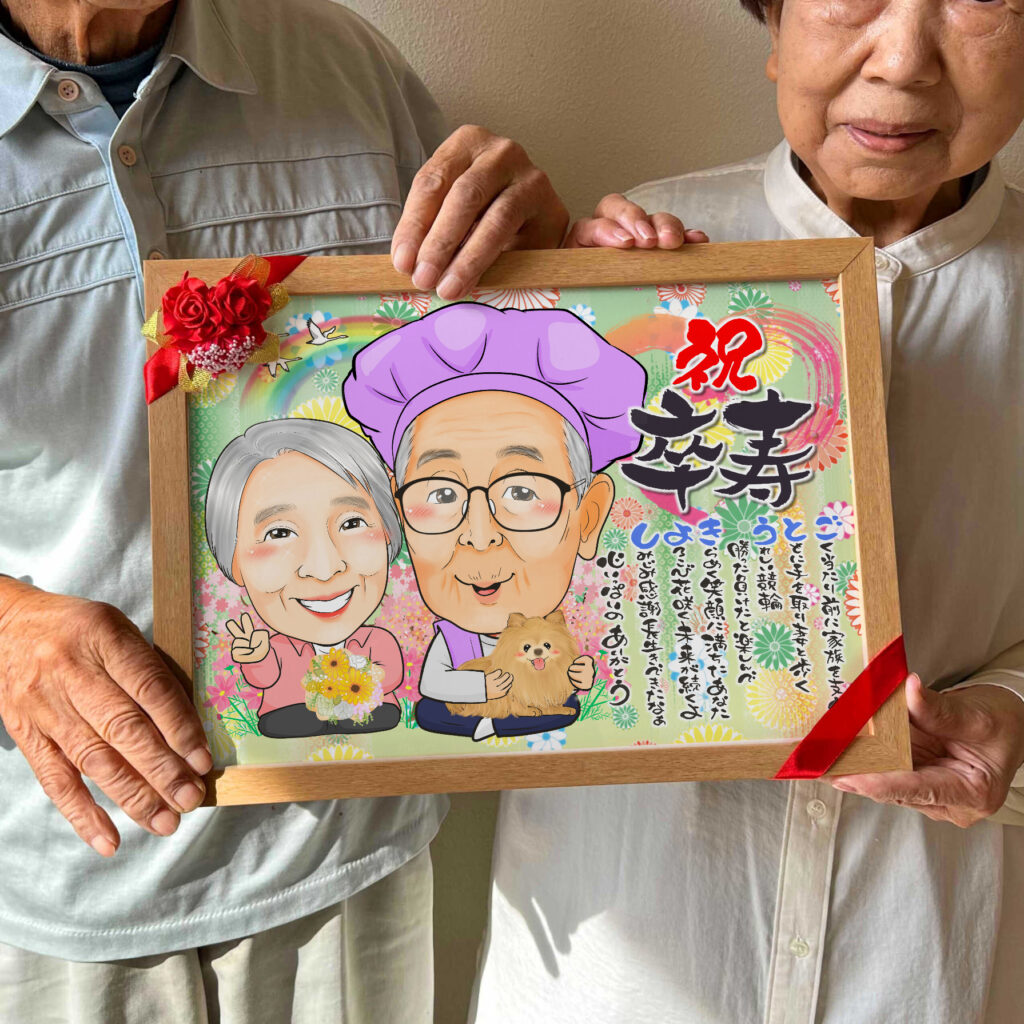 祝
卒寿
ごく当たり前に家族を支え
ともに手を取り妻と歩く
うれしい競輪
勝った負けたと楽しんで
きらめく笑顔に満ちたあなた
よろこび花咲く未来が続くよ
しみじみ感謝長生きできたなぁ
心いっぱいの ありがとう